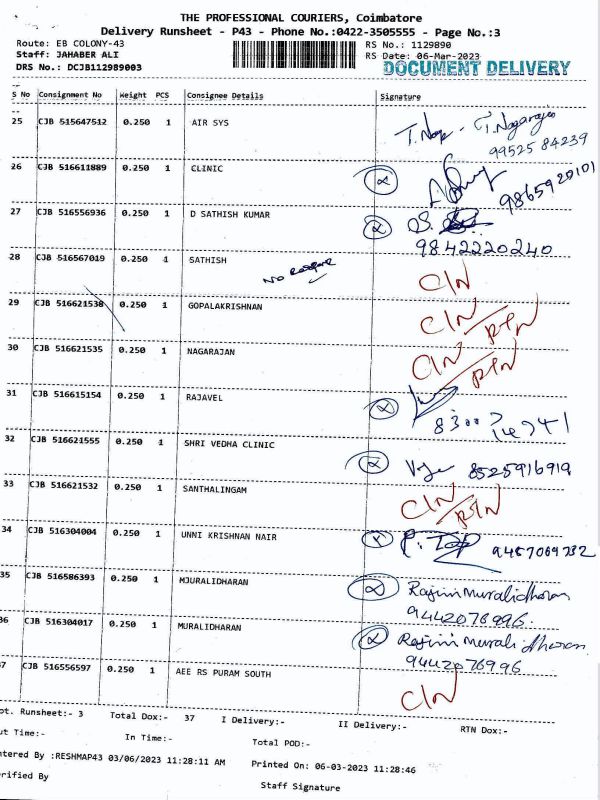 THE PROFESSIONAL COURIERS, Coimbatore
Delivery Runsheet - P43 - Phone No.:0422-3505555 - Page No.:3
Route: EB COLONY-43
RS No.: 1129890
Staff: JAHABER ALI
RS Date: 06-Mar-2023
DRS No.: DCJB112989003
DOCUMENT DELIVERY
S No Consignment No Weight PCS Consignee Details Signature
25 CJB 515647512 0.250 1 AIR SYS T. Nagarajan
99525 84239
26 CJB 516611889 0.250 1 CLINIC
9865920101
27 CJB 516556936 0.250 1 D SATHISH KUMAR
9842220240
28 CJB 516567019 0.250 1 SATHISH C/N
29 CJB 516621538 0.250 1 GOPALAKRISHNAN C/N RTN
30 CJB 516621535 0.250 1 NAGARAJAN C/N RTN
31 CJB 516615154 0.250 1 RAJAVEL
32 CJB 516621555 0.250 1 SHRI VEDHA CLINIC 8525916919
33 CJB 516621532 0.250 1 SANTHALINGAM C/N RTN
34 CJB 516304004 0.250 1 UNNI KRISHNAN NAIR
35 CJB 516586393 0.250 1 MJURALIDHARAN Rajini Muralidharan
9442076996
36 CJB 516304017 0.250 1 MURALIDHARAN Rajini Muralidharan
9442076996
37 CJB 516556597 0.250 1 AEE RS PURAM SOUTH C/N
ot. Runsheet:- 3 Total Dox:- 37 I Delivery:- II Delivery:- RTN Dox:-
ut Time:- In Time:- Total POD:-
ntered By :RESHMAP43 03/06/2023 11:28:11 AM Printed On: 06-03-2023 11:28:46
erified By Staff Signature